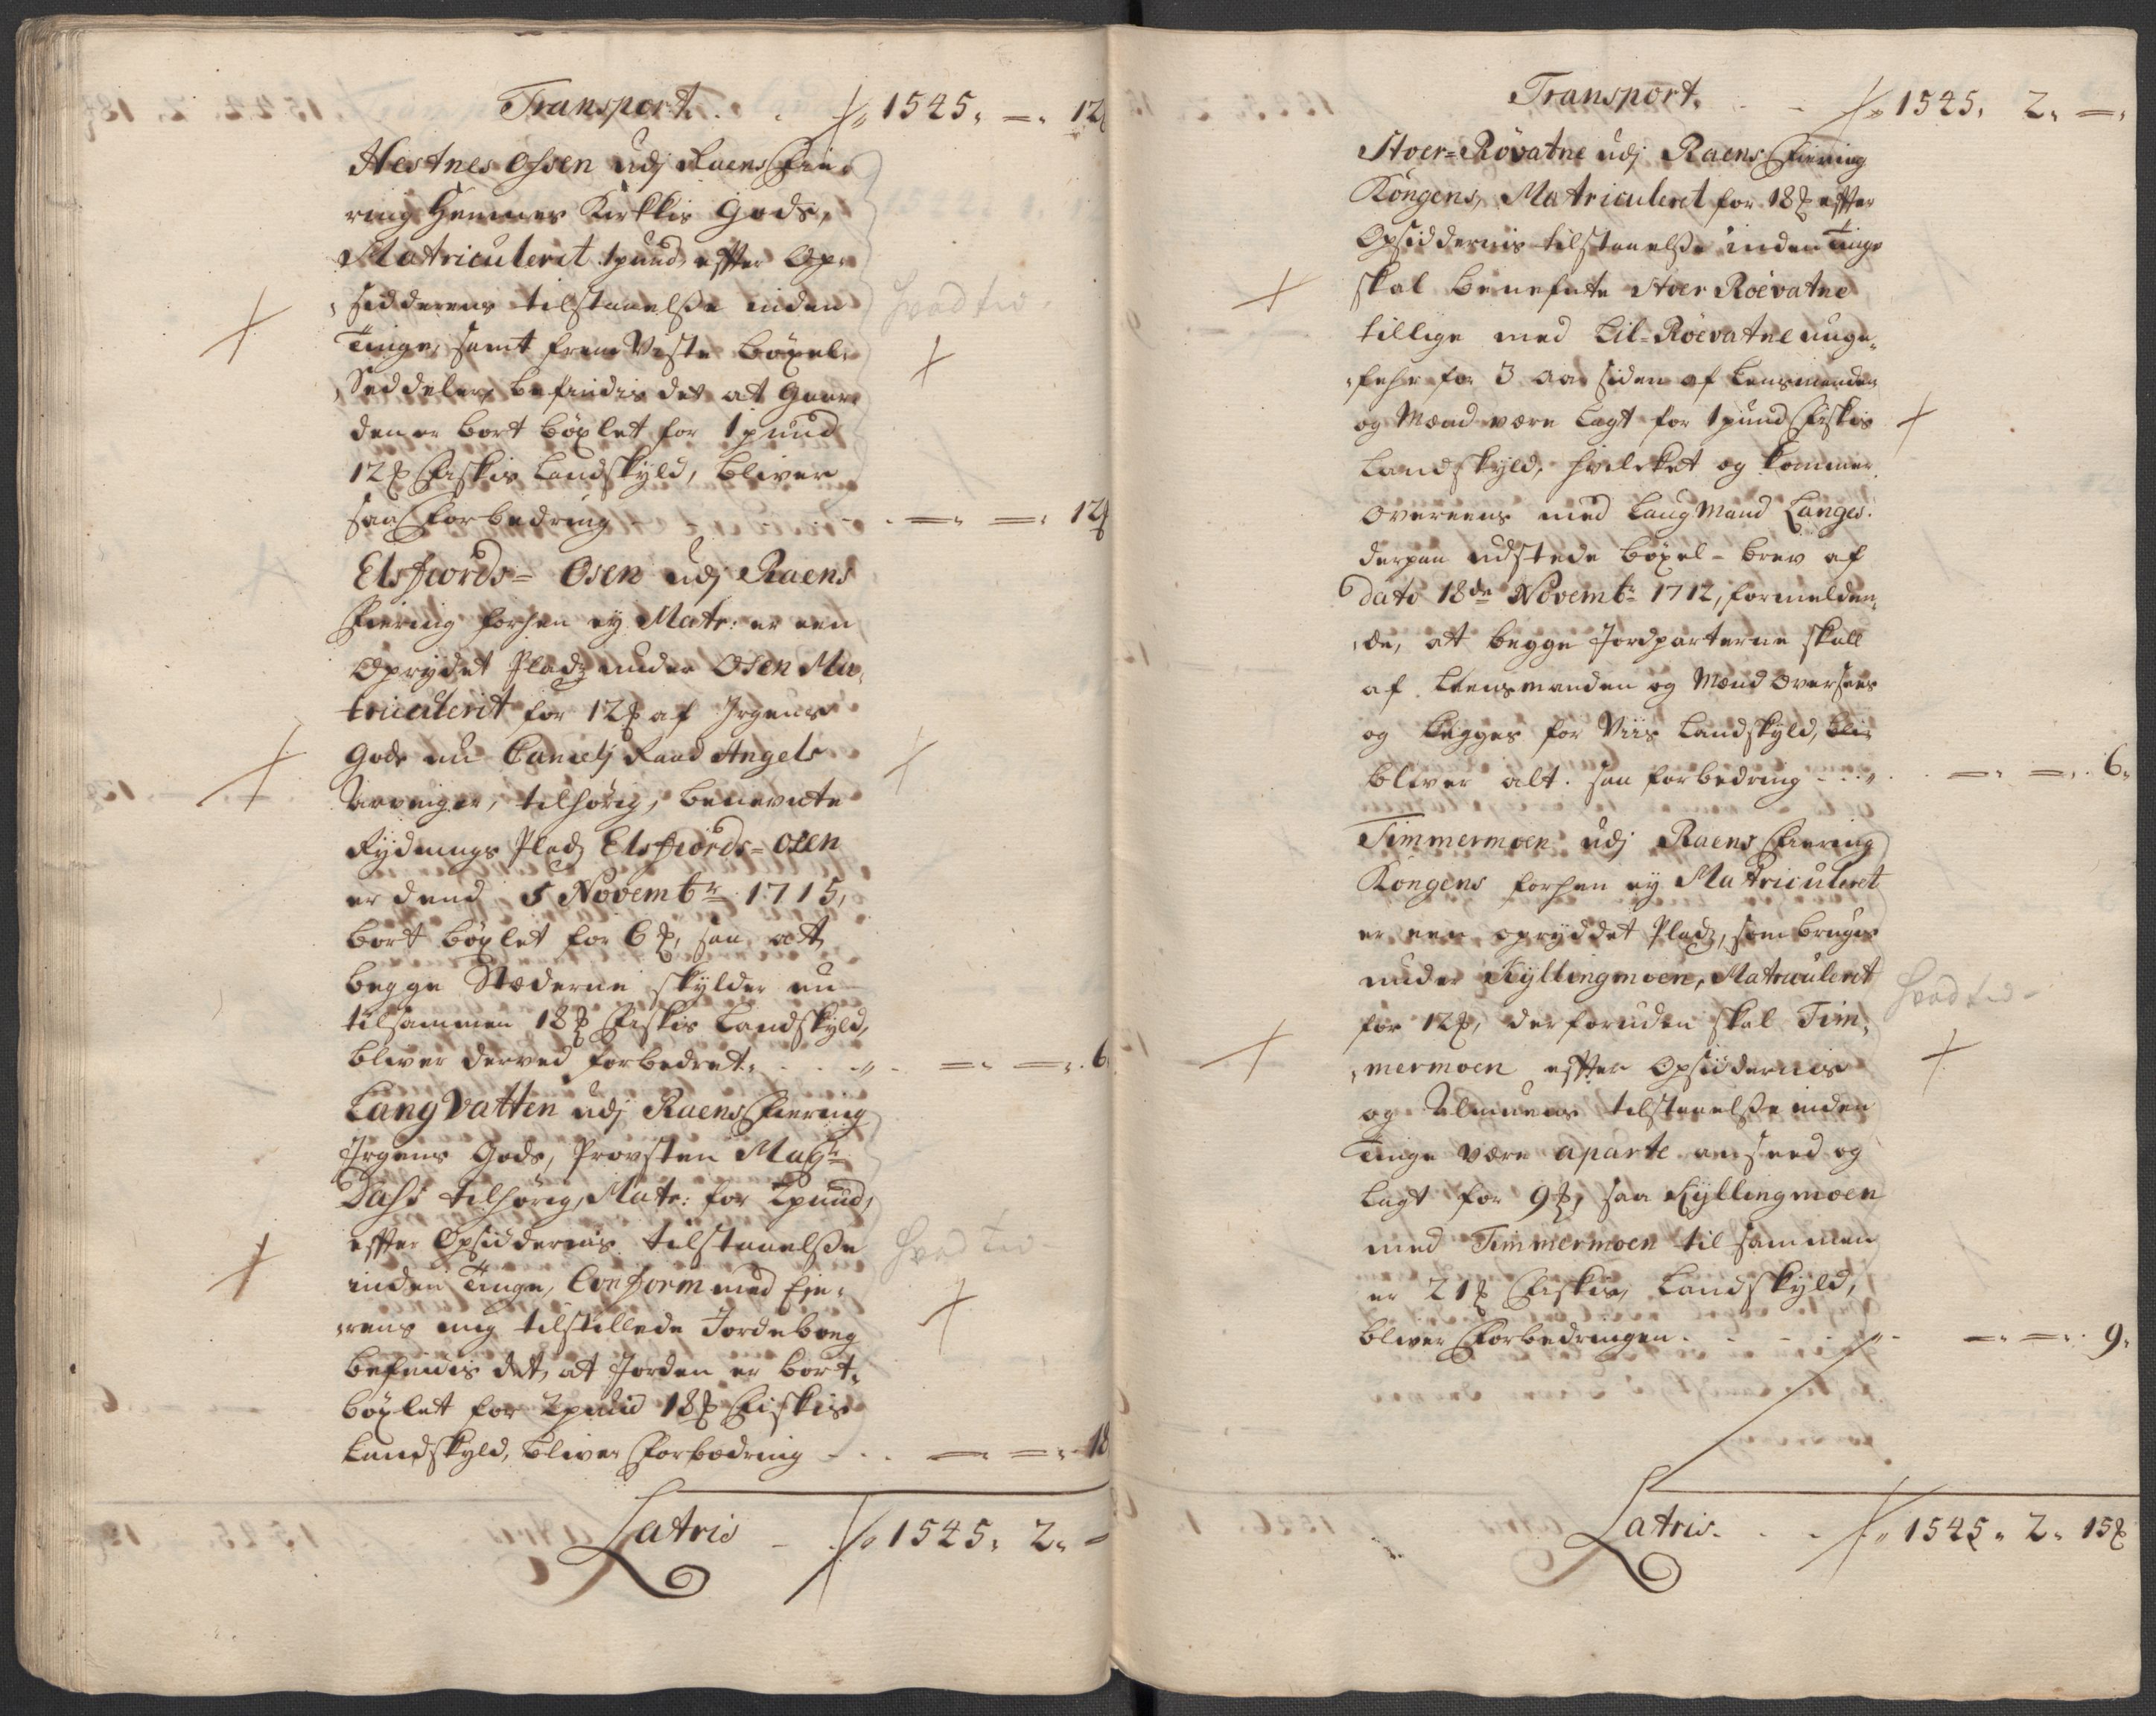 Transport. . . 1545. =. 12
Hestnes Ossen udj Raens Fie-
ring Hemnes Kirkkis Gods,
Matriculerit 1 pund, effter Op-
sidderens tilstaaelsse inden
Tinge, samt frem Viste böxel-
Seddeler, befindis det at Gaar-
den er bort böxlet for 1 pund
12 ℔ Fiskis Landskyld, bliver
saa Forbedring =. =. 12
Elsfiords= Osen udj Raens
Fiering forhen ej Matr: er een
Oprydet Pladz under Osen Ma-
triculerit for 12 ℔ af Irgens
Gods nu Cancelj Raad Angels
Arvinger, tilhörig, benevnte
Rydnings Pladz Elsfiords=Osen
er dend 5 Novembr 1715,
bort böxlet for 6 ℔, saa att
begge Stæderne skylder nu
tilsammen 18 ℔ Fiskis Landskyld,
bliver derved forbedret. . . . =. =. 6
Langvatten udj Raens Fiering
Irgens Gods, Provsten Magr
Dass tilhörig, Matr: for 2 pund,
effter Opsiddernis tilstaaelsse
inden Tinge, Conform med Eje-
rens mig tilstillede Jordeboeg
befindis det, at Jorden er bort-
böxlet for 2 pund 18 ℔ Fiskis
Landskyld, bliver Forbædring - . . =. =. 18
Latris - . 1545. 2. =
hvad tid
hvad tid
Transport. - - 1545. 2. =.
Stoer=Rövatne udj Raens Fiering
Kongens, Matriculerit for 18 ℔ effter
Opsiddernis tilstaaelsse inden Tinge
skal benefnte Stoer Röevatne
tillige med Lil=Röevatne unge-
fehr for 3 aar siden af Lensmanden
og Mænd være lagt for 1 pund Fiskis
Landskyld, hvilcket og kommer
overeens med Laugmand Langes
derpaa udstede böxel=brev af
dato 18de Novembr 1712, formelden-
de, att begge Jordparterne skall
af Leensmanden og Mænd oversees
og Legges for Viis Landskyld, bli-
bliver alt saa forbedring - . . =. =. 6.
Timmermoen udj Raens Fiering
Kongens forhen ej Matriculerit
er een oprÿddet Pladz, som bruges
under Kyllingmoen, Matriculerit
for 12 ℔, derforuden skal Tim-
mermoen effter Opsiddernis
og Almuens tilstaaelsse inden
Tinge være aparte anseed og
lagt for 9 ℔, saa Kyllingmoen
med Timmermoen tilsammen
er 21 ℔ Fiskis, Landskyld,
bliver Forbedringen. - - . =. =. 9.
hvad tid -
Latris. . . 1545. 2. 15 ℔